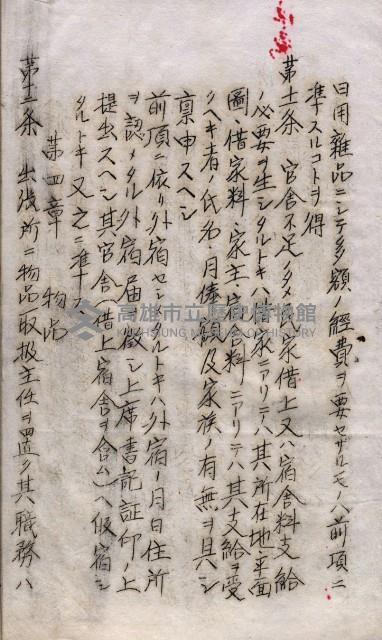 日用雜品ニシテ多額ノ經費ヲ要セザルモノハ前項ニ
準スルコトヲ得
第十一条 官舎不足ノタメ家借上又ハ宿舎料支給
ノ必要ヲ生シタルトキハ家ニアリテハ其所在地平面
圖、借家料、家主、宿舎料ニアリテハ其支給ヲ受
クヘキ者ノ氏名、月俸額及家族ノ有無ヲ具シ
稟申スヘシ
前項ニ依リ外宿セシメタルトキハ外宿ノ月日住所
ヲ認メタル外宿届ヲ徴シ上席書記証印ノ上
提出スヘシ其官舎(借上宿舎ヲ含ム)ヘ仮宿シ
タルトキ又之ニ準ス
第四章 物品
第十二条 出張所ニ物品取扱主任ヲ置ク其職務ハ
高雄市立歷史博物館
KAOHSIUNG MUSEUM OF HISTORY